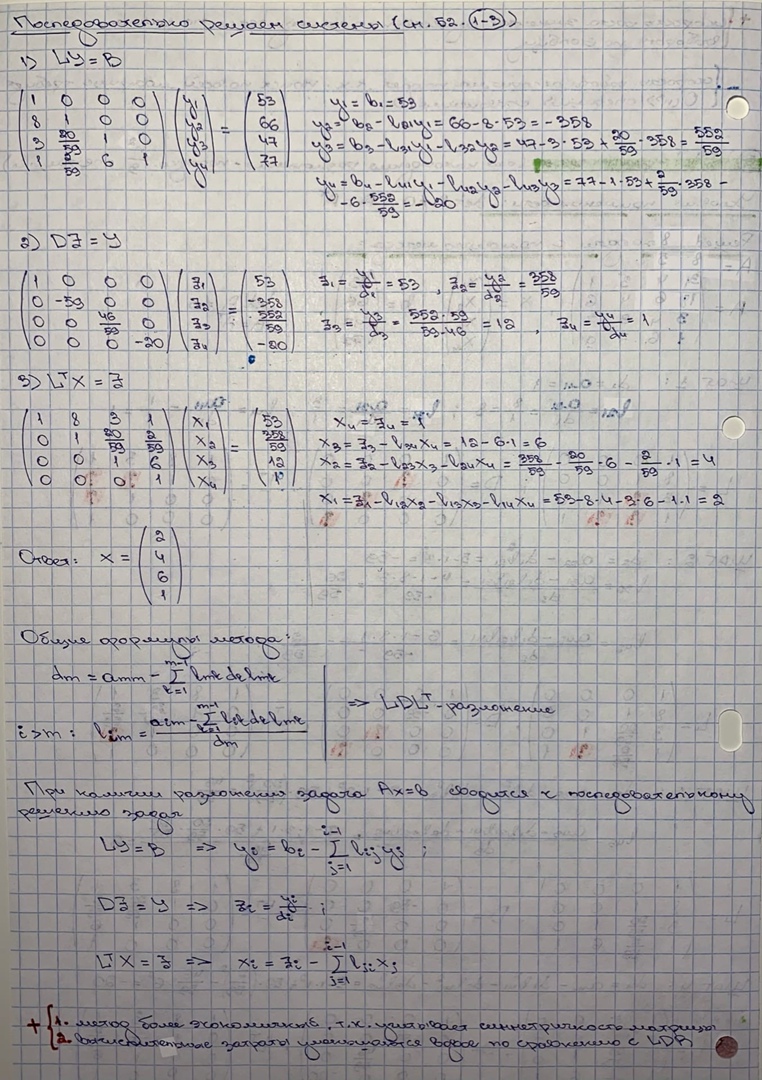 Последовательно решаем системы (сн. 52. 1-3)
1) LY = B
( 1 0 0 0 ) ( y1 ) = ( 53 )
( 8 1 0 0 ) ( y2 ) ( 66 )
( 3 20/59 1 0 ) ( y3 ) ( 47 )
( 1 2/59 6 1 ) ( y4 ) ( 77 )
y1 = b1 = 53
y2 = b2 - l21y1 = 66 - 8 · 53 = - 358
y3 = b3 - l31y1 - l32y2 = 47 - 3 · 53 + 20/59 · 358 = 552/59
y4 = b4 - l41y1 - l42y2 - l43y3 = 77 - 1 · 53 + 2/59 · 358 -
- 6 · 552/59 = - 20
2) DZ = Y
( 1 0 0 0 ) ( z1 ) = ( 53 )
( 0 -59 0 0 ) ( z2 ) ( -358 )
( 0 0 46/59 0 ) ( z3 ) ( 552/59 )
( 0 0 0 -20 ) ( z4 ) ( -20 )
z1 = y1/d1 = 53 , z2 = y2/d2 = 358/59
z3 = y3/d3 = 552 · 59/59 · 46 = 12 , z4 = y4/d4 = 1
3) LᵀX = Z
( 1 8 3 1 ) ( x1 ) = ( 53 )
( 0 1 20/59 2/59 ) ( x2 ) ( 358/59 )
( 0 0 1 6 ) ( x3 ) ( 12 )
( 0 0 0 1 ) ( x4 ) ( 1 )
x4 = z4 = 1
x3 = z3 - l34x4 = 12 - 6 · 1 = 6
x2 = z2 - l23x3 - l24x4 = 358/59 - 20/59 · 6 - 2/59 · 1 = 4
x1 = z1 - l12x2 - l13x3 - l14x4 = 53 - 8 · 4 - 3 · 6 - 1 · 1 = 2
Ответ: x = ( 2 4 6 1 )
Общие формулы метода:
dm = amm - Σ(k=1, m-1) lmk dk lmk
i > m : lim = (aim - Σ(k=1, m-1) lik dk lmk) / dm
=> LDLᵀ - разложение
При наличии разложения задача Ax=b сводится к последовательному
решению задач
LY = B => yi = bi - Σ(j=1, i-1) lij yj ;
DZ = Y => zi = yi/di ;
LᵀX = Z => xi = zi - Σ(j=1, i-1) lji xj
+ { 1. метод более экономичный, т.к. учитывает симметричность матрицы
2. вычислительные затраты уменьшаются вдвое по сравнению с LDR